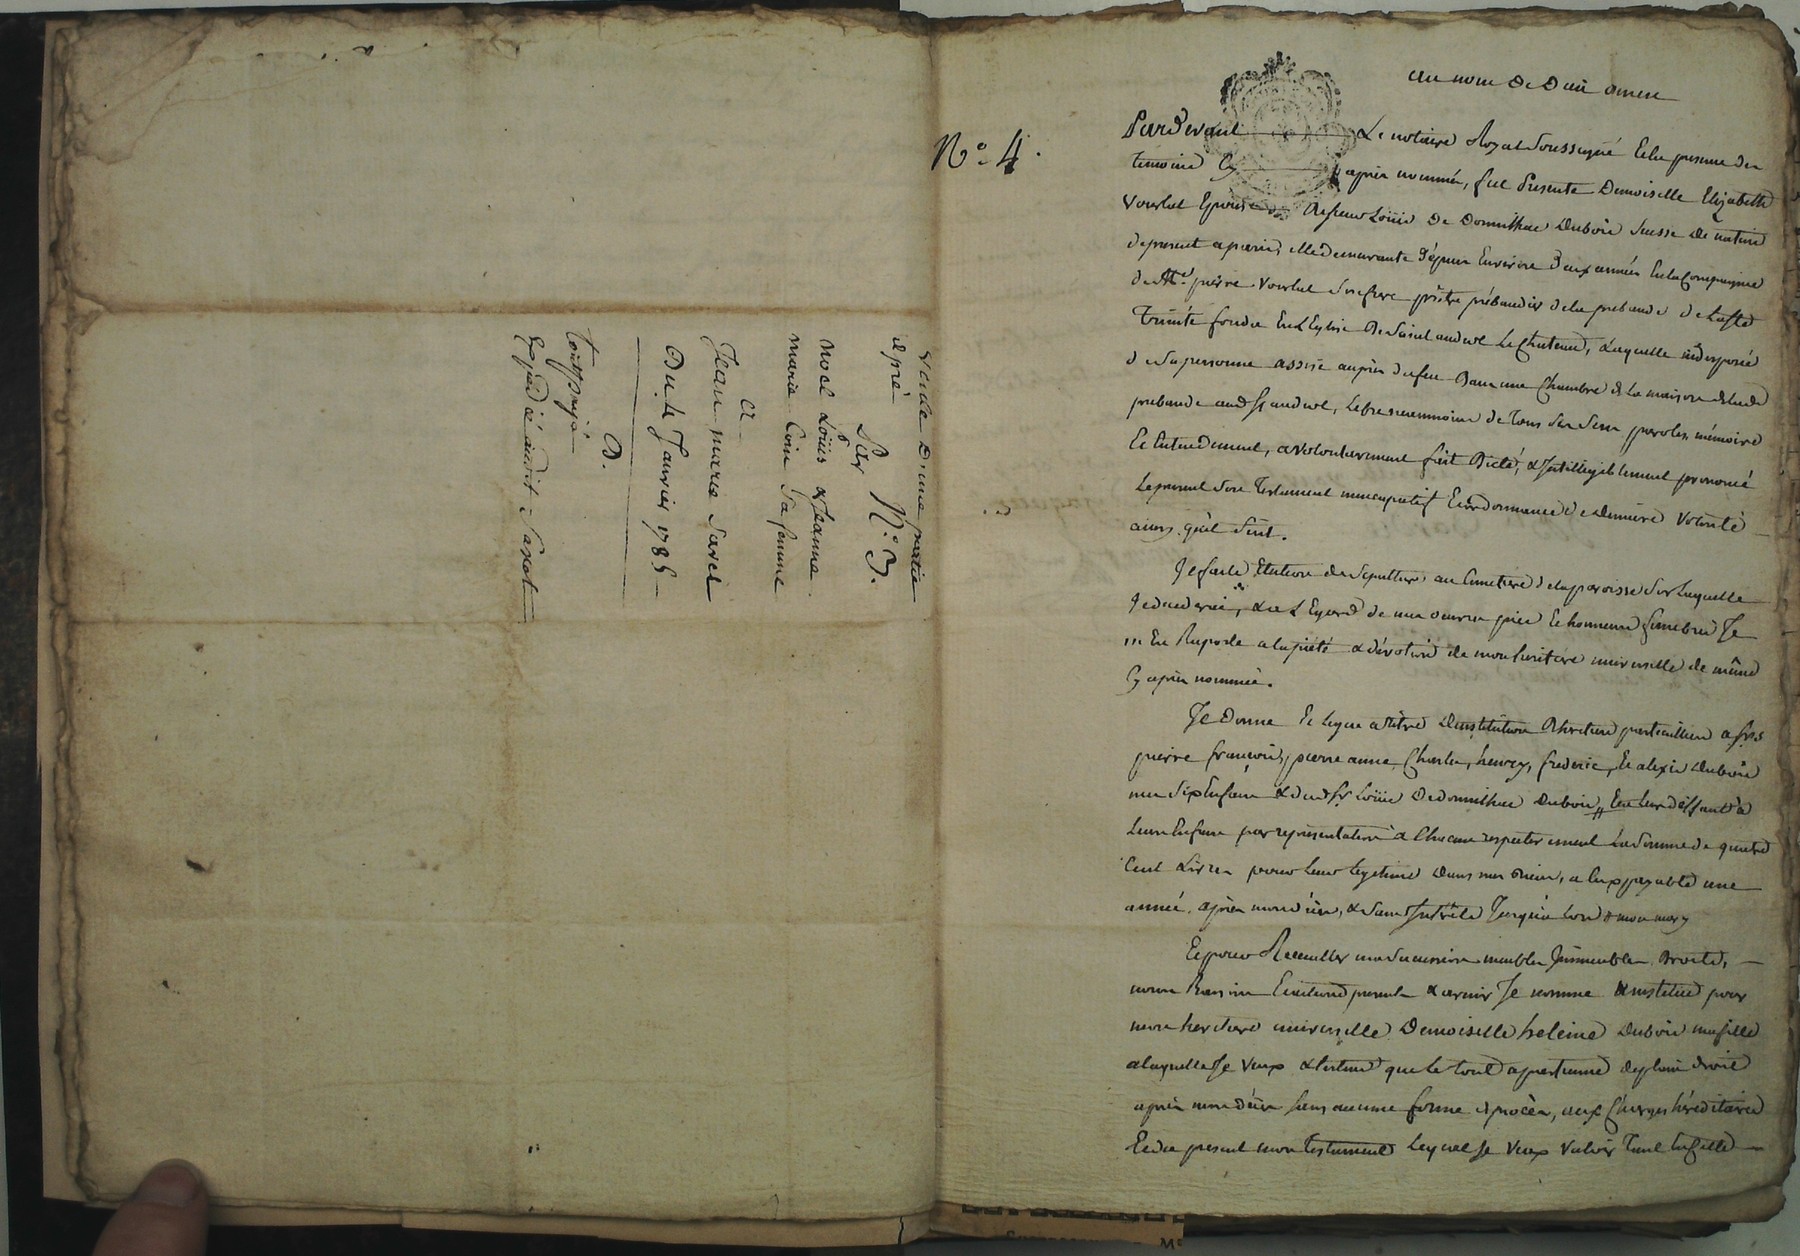 Vende D'une partie
d'pré
N.° 3.
Par
noel Loüis & Jeanne
marie Coin Sa femme
a
Jean marie Savel
Du 4 Janvier 1785
D.
Controllé
Expédié audit Savel
N.° 4.
au nom De Dieu amen
Pardevant Le notaire Royal Soussigné Et en presence des
temoins Cy après nommés, fut Presente Demoiselle Elizabeth
Vourlat Epouse De sieur Loüis De Domithue Dubois Suisse De nation
de present a paris, elle demeurante depuis Environ deux années En la Compagnie
de Mre. pierre Vourlat Son frere prêtre prébandier de la prebande de La Ste
Trinité fondée En L'Eglise De Saint andré Le Chateau, Laquelle indisposée
de Sa personne assise auprès du feu Dans une Chambre de La maison de lad.
prebande aud. St andré, Libre neanmoins de tous Ses Sens parolle, mémoire
Et Entendement, a volontairement fait Dicté, & Intelligiblement prononcé
Le present Son Testament nuncupatif Et ordonnance De Derniere Volonté
ainsy qu'il Suit.
Je fais Election de Sepulture au Cimetiere de la paroisse Sur Laquelle
Je decederai, & a L'Egard de mes oeuvres pies Et honneurs funebres Je
m'En Raporte a la piété & dévotion de mon heritiere universelle de même
Cy après nommée.
Je Donne Et Legue a titre D'institution D'heritiers particuliers a Srs
pierre françois, pierre anne, Charles, henry, frederic, Et alexis Dubois
mes Six Enfans & dud. Sr. Loüis De Domithue Dubois, En Leur deffaut à
Leurs Enfans par representation a Chacun respectivement La Somme de quatre
Cent Livres pour Leur Legitime Dans mes Biens, a Eux payable une
année après mon décès, & Sans Intérêts Jusqu'a Lors & mon mary
Et pour Recueillir ma Succession meubles Immeubles Droits,
noms Raisons Et actions presents & avenir Je nomme & institue pour
mon heritiere universelle Demoiselle heleine Dubois ma fille
a laquelle Je Veux & Entend que Le tout apartienne de plein droit
après mon décès Sans aucune forme de procès, aux Charges héréditaires
Et du present mon Testament Lequel Je Veux Valoir Tant En Celle